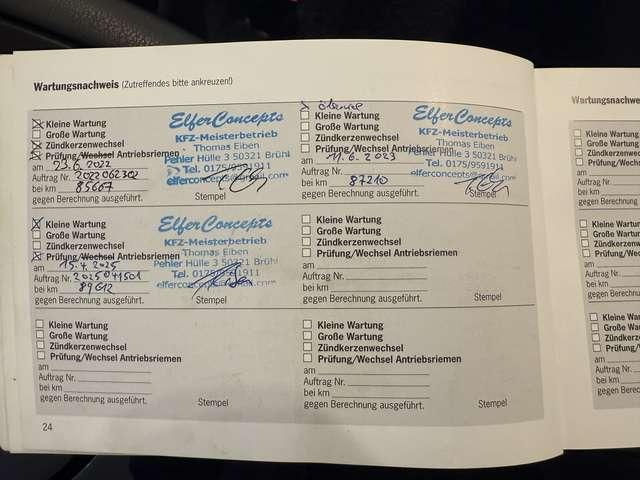 Wartungsnachweis (Zutreffendes bitte ankreuzen!)
Kleine Wartung
Große Wartung
Zündkerzenwechsel
Prüfung/Wechsel Antriebsriemen
am 23.6.2022
Auftrag Nr. 2022062302
bei km 85667
gegen Berechnung ausgeführt.
Stempel
ElferConcepts
KFZ-Meisterbetrieb
Thomas Eiben
Pehler Hülle 3 50321 Brühl
Tel. 0175/9591911
Ölservice
Kleine Wartung
Große Wartung
Zündkerzenwechsel
Prüfung/Wechsel Antriebsriemen
am 11.6.2023
Auftrag Nr.
bei km 87210
gegen Berechnung ausgeführt.
Stempel
ElferConcepts
KFZ-Meisterbetrieb
Thomas Eiben
Pehler Hülle 3 50321 Brühl
Tel. 0175/9591911
Kleine Wartung
Große Wartung
Zündkerzenwechsel
Prüfung/Wechsel Antriebsriemen
am 15.4.2025
Auftrag Nr. 2025041501
bei km 89612
gegen Berechnung ausgeführt.
Stempel
ElferConcepts
KFZ-Meisterbetrieb
Thomas Eiben
Pehler Hülle 3 50321 Brühl
Tel. 0175/9591911
Kleine Wartung
Große Wartung
Zündkerzenwechsel
Prüfung/Wechsel Antriebsriemen
am
Auftrag Nr.
bei km
gegen Berechnung ausgeführt.
Stempel
Kleine Wartung
Große Wartung
Zündkerzenwechsel
Prüfung/Wechsel Antriebsriemen
am
Auftrag Nr.
bei km
gegen Berechnung ausgeführt.
Stempel
Kleine Wartung
Große Wartung
Zündkerzenwechsel
Prüfung/Wechsel Antriebsriemen
am
Auftrag Nr.
bei km
gegen Berechnung ausgeführt.
Stempel
24
Kleine Wartung
Große Wartung
Zündkerzenwechsel
am
Auftrag Nr.
bei km
Kleine Wartung
Große Wartung
am
Auftrag Nr.
bei km
Kleine Wartung
am
Auftrag Nr.
bei km